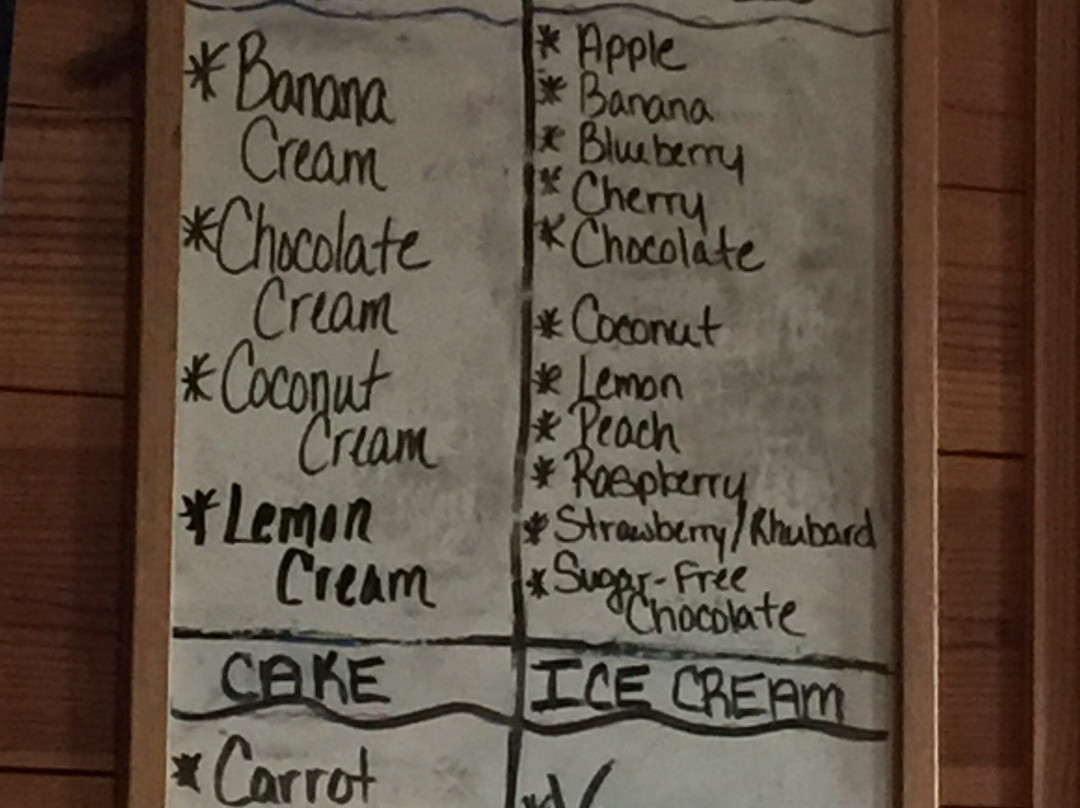 * Banana
Cream
* Chocolate
Cream
* Coconut
Cream
* Lemon
Cream
* Apple
* Banana
* Blueberry
* Cherry
* Chocolate
* Coconut
* Lemon
* Peach
* Raspberry
* Strawberry/Rhubard
* Sugar-Free
Chocolate
CAKE
* Carrot
ICE CREAM